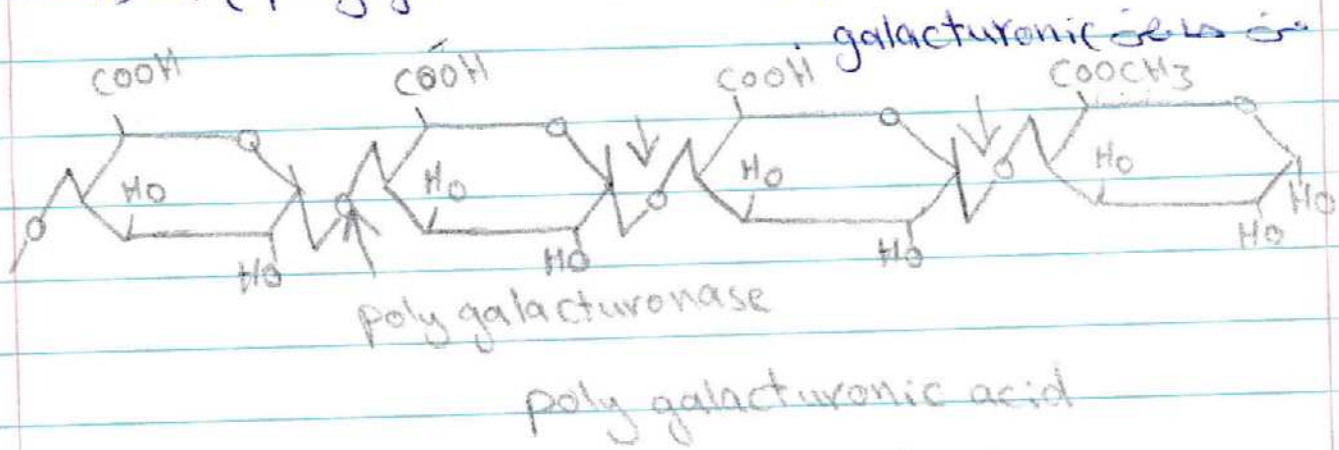 galacturonic من حامض
COOH COOH COOH COOCH3
O O O O
HO HO HO HO
O O O O
HO HO HO HO HO
poly galacturonase
poly galacturonic acid